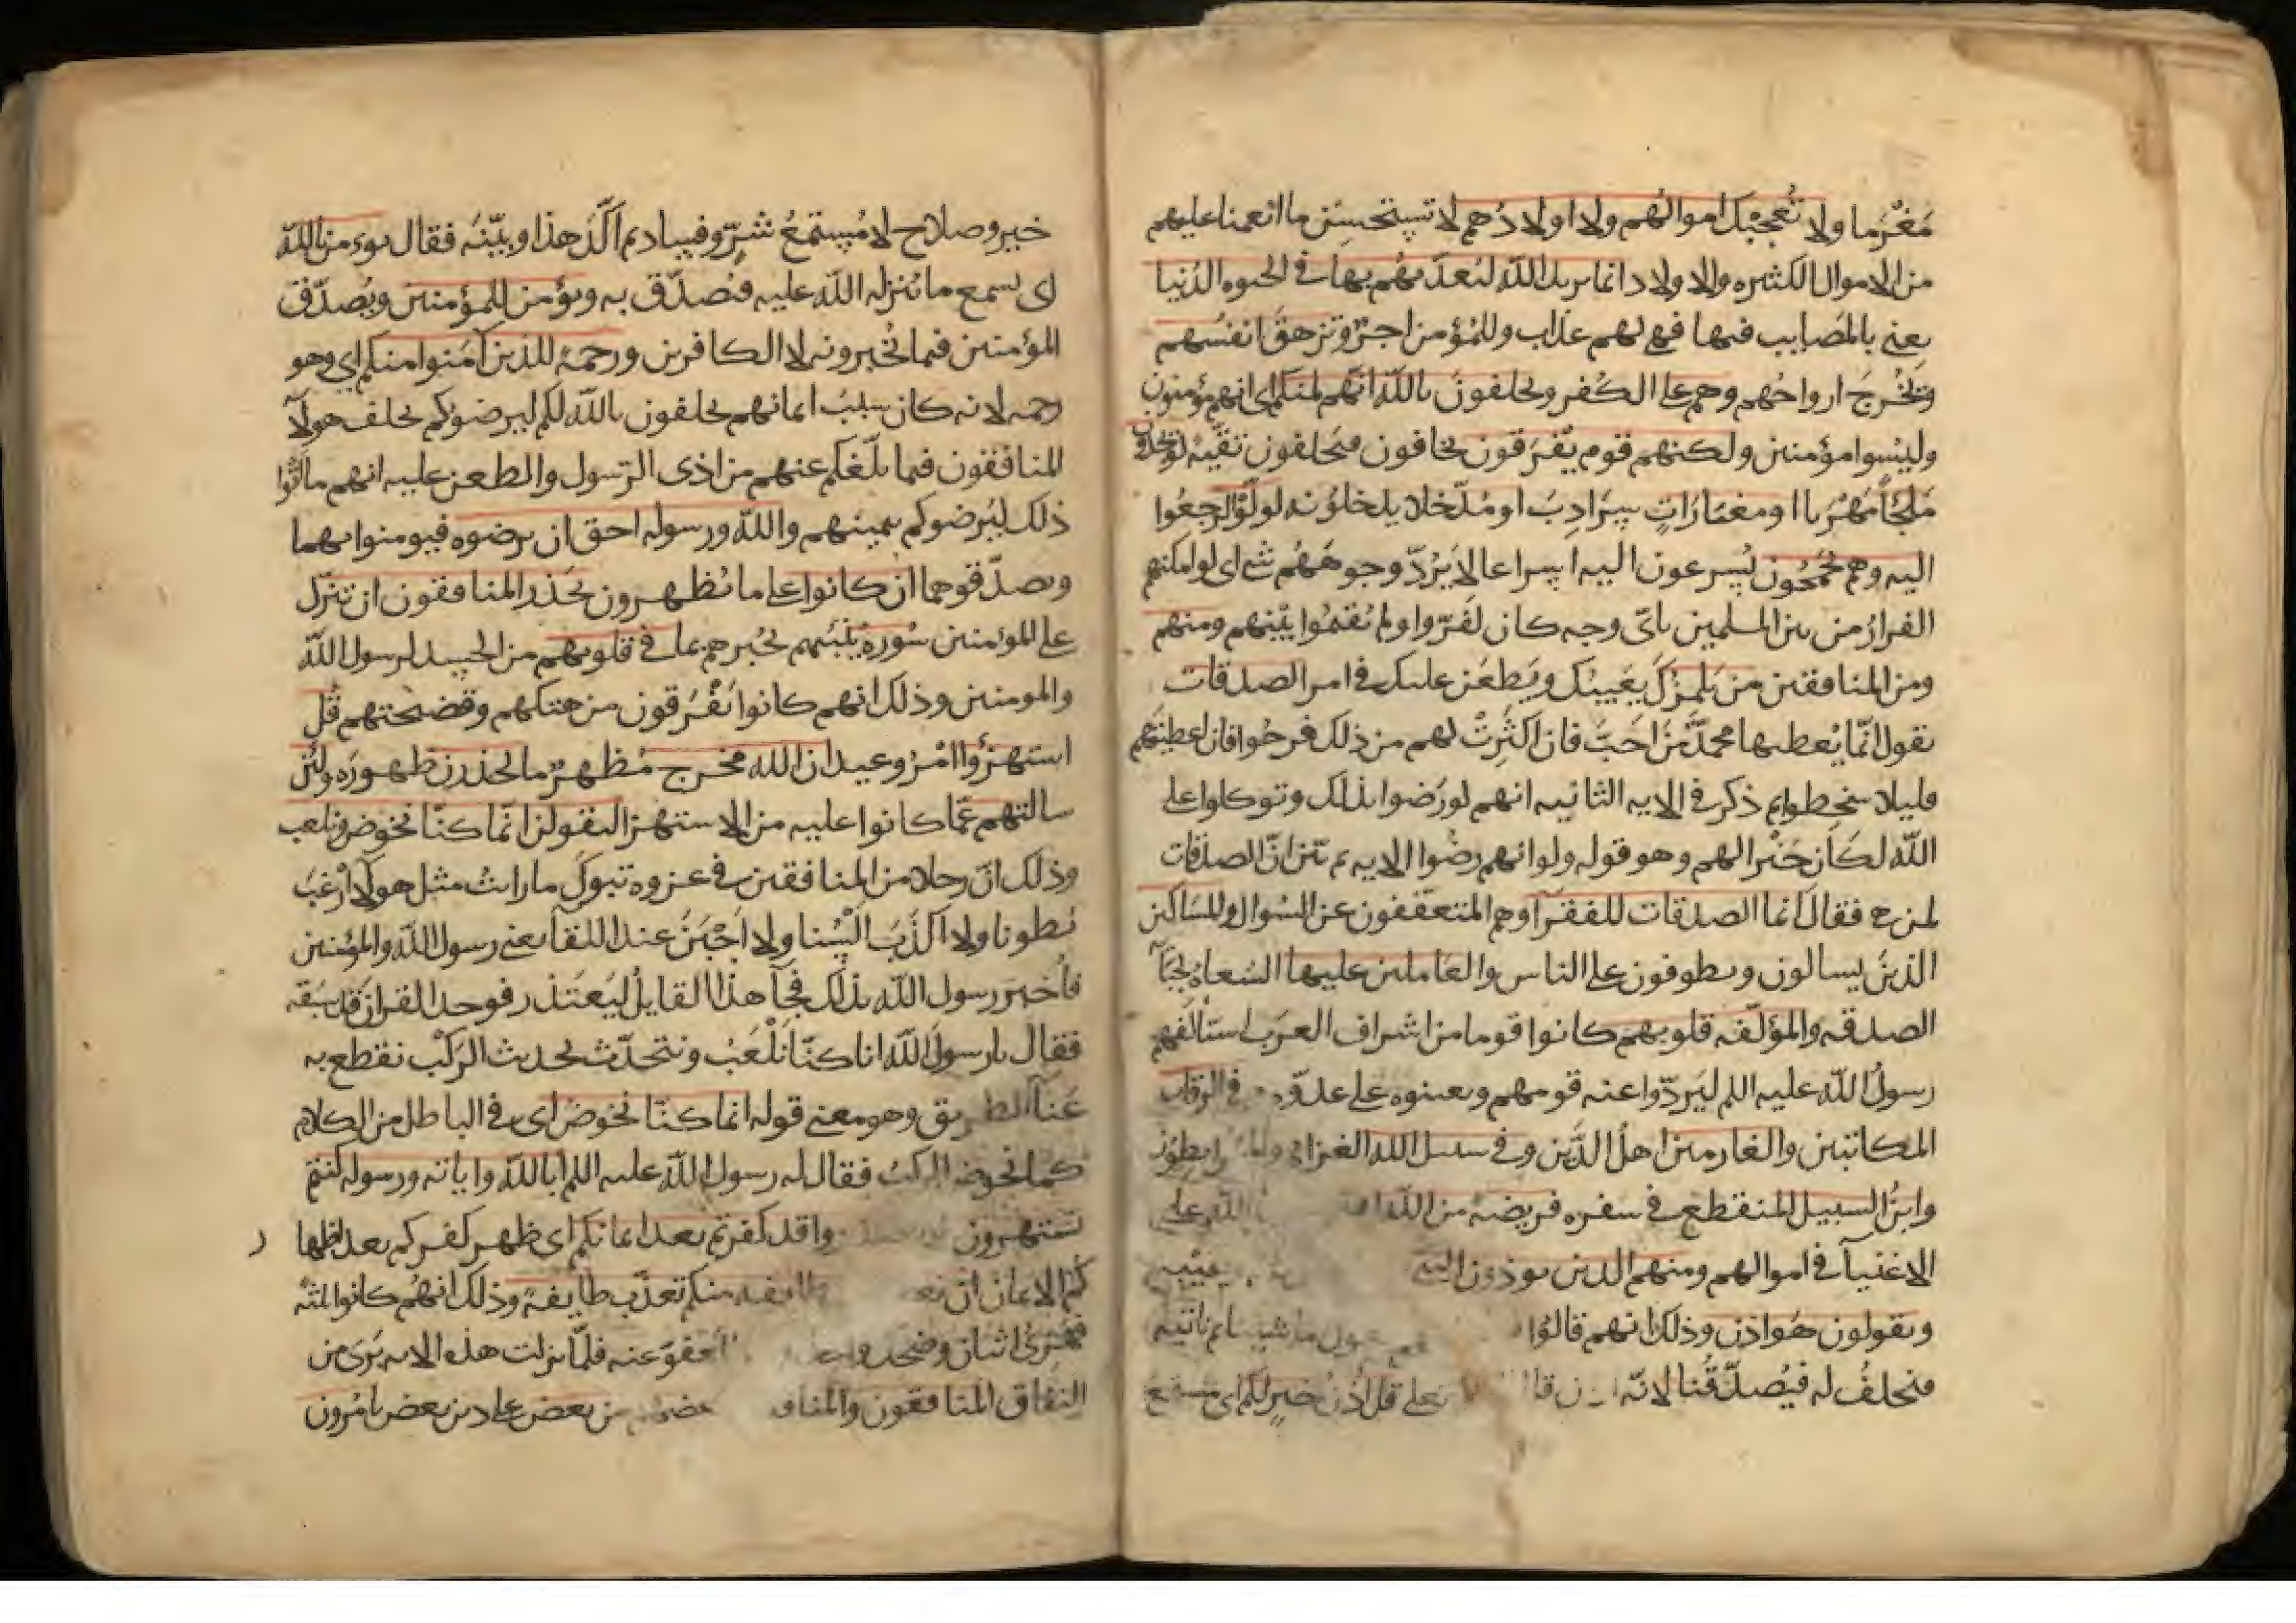 مَغْرَما ولا تُعجبك اموالهم ولا اولادُهم لا تستحسِنَن ما انعمنا عليهم
من الاموال الكثيره والاولاد انما يريد الله ليُعذّبهُم بها في الحيوه الدُنيا
يعني بالمصايب فيها فهي لهم عذاب وللمُؤمن اجرٌ وتزهقَ انفسُهم
وتَخْرجَ ارواحُهم وهم على الكُفر ويحلفونَ بالله انّهم لمنكم اي انهم مؤمنون
وليسوا مؤمنين ولكنهم قوم يَفْرَقون يخافون فيحلفون تقيّة لو يجدون
مَلجَأً مَهْرَبا او مغارَاتٍ سِرَادِبَ او مُدّخلا يدخلوُنه لولّوْا لرجعُوا
اليه وهم يَجْمحُون يُسرعون اليه اسراعا لا يَرُدّ وجوهَهُم شي اي لو امكنهم
الفرارُ من بين المسلمين باىّ وجه كان لفَرّوا ولم يُقيمُوا بَيْنهم ومنهم
ومن المنافقين من يَلمزك يَعيبُك ويَطعَن عليك في امر الصدقات
يقول انّما يُعطيها محمدٌ مَنْ احَبّ فان اكثَرتْ لهم من ذلك فرحُوا فان اعطيتَهم
قليلا سخطوا ثم ذكر في الايه الثانيه انهم لو رَضوا بذلك وتوكلوا على
الله لكَان خَيْرا لهم وهو قوله ولو انهم رضُوا الايه ثم بيّن انّ الصدقات
لمن هي فقال انما الصدقات للفقرآ وهم المتعفّفون عن السُوال والمسَاكين
الذينَ يسالون ويطوفون على الناس والعَاملين عليها السُعاة لجبَآ
الصدقه والمؤلّفه قلوبهم كانوا قوما من اشراف العرَب استالفهم
رسولُ الله عليه السلم ليَردّوا عنه قومهم ويعينوه على عدوّه في الرقاب
المكاتبين والغارمين اهلُ الدَّين وفي سبيل الله الغزاة
وابنُ السبيل المنقطع في سفره فريضةً من الله الله على
الاغنيآ في اموالهم ومنهم الذين يوذون النبي
ويقولون هُو اذن وذلك انهم قالوُا ما شينا ثم ناتيه
فنحلفُ له فيُصدّقُنا لانه اذن قل اُذُنُ خيرٍ لكم اي مستمع
خير وصلاح لا مُستمعُ شرٍّ وفساد ثم اكّدَ هذا وبيّنَه فقال يومن بالله
اى يسمع ما يُنزله الله عليه فيُصدّق به ويؤمن للمؤمنين ويُصدّق
المؤمنين فيما يُخبرونه لا الكافرين ورحمة للذين آمَنوا منكم اي وهو
رحمه لانه كان سببَ ايمانهم يحلفون بالله لكم ليرضوكم يحلف هولآ
المنافقون فيما بلّغكم عنهم من اذى الرسول والطعن عليه انهم ما اتَوا
ذلك ليُرضوكم بيمينهم والله ورسوله احق ان يرضوه فيومنوا بهما
ويصدّقوهما ان كانوا على ما يُظهرون يحذر المنافقون ان تنزّل
على المؤمنين سُورة تُنبّئهم تخُبرهم بما في قلوبهم من الحسد لرسول الله
والمومنين وذلك انهم كانوا يَفْرَقون من هتكهم وفضيحتهم قُل
استهزؤا امْرُ وعيد ان الله مخرج مُظهرٌ ما تحذرون ظهورَه ولئن
سالتهم عمّا كانوا عليه من الاستهزا ليقولن انّما كنّا نخوض ونلعب
وذلك انّ رجلا من المنافقين في غزوة تبوكَ ما رايتُ مثل هولا اَرْغبَ
بُطونا ولا اَكذَبَ اَلْسُنا ولا اَجْبَنَ عند اللقآ يعني رسول الله والمؤمنين
فاُخبرَ رسول الله بذلك فجآ هذا القايلُ ليَعتَذر فوجد القران قد سَبَقه
فقال يا رسولَ الله انا كنّا نَلْعَبُ ونتحدّث بحديث الرَكْب نقطع به
عَنآ الطريق وهو معنى قوله انما كنّا نخوض اى في الباطل من الكلام
كما نخوض الركبُ فقال له رسول الله عليه السلم اَبالله واياته ورسوله كنتم
تستهزون واقد كفرتم بعد ايمانكم اى ظهر كفركم بعد اظها
كم الايمان ان نعف طائفه منكم نعذّب طايفة وذلك انهُم كانوا ثلثه
فهَزئ اثنان وضحك واحد المعفوّ عنه فلمّا نزلت هذه الايه بَرئ من
النفاق المنافقون والمنافقات بعضهم من بعض على دين بعض يامُرون